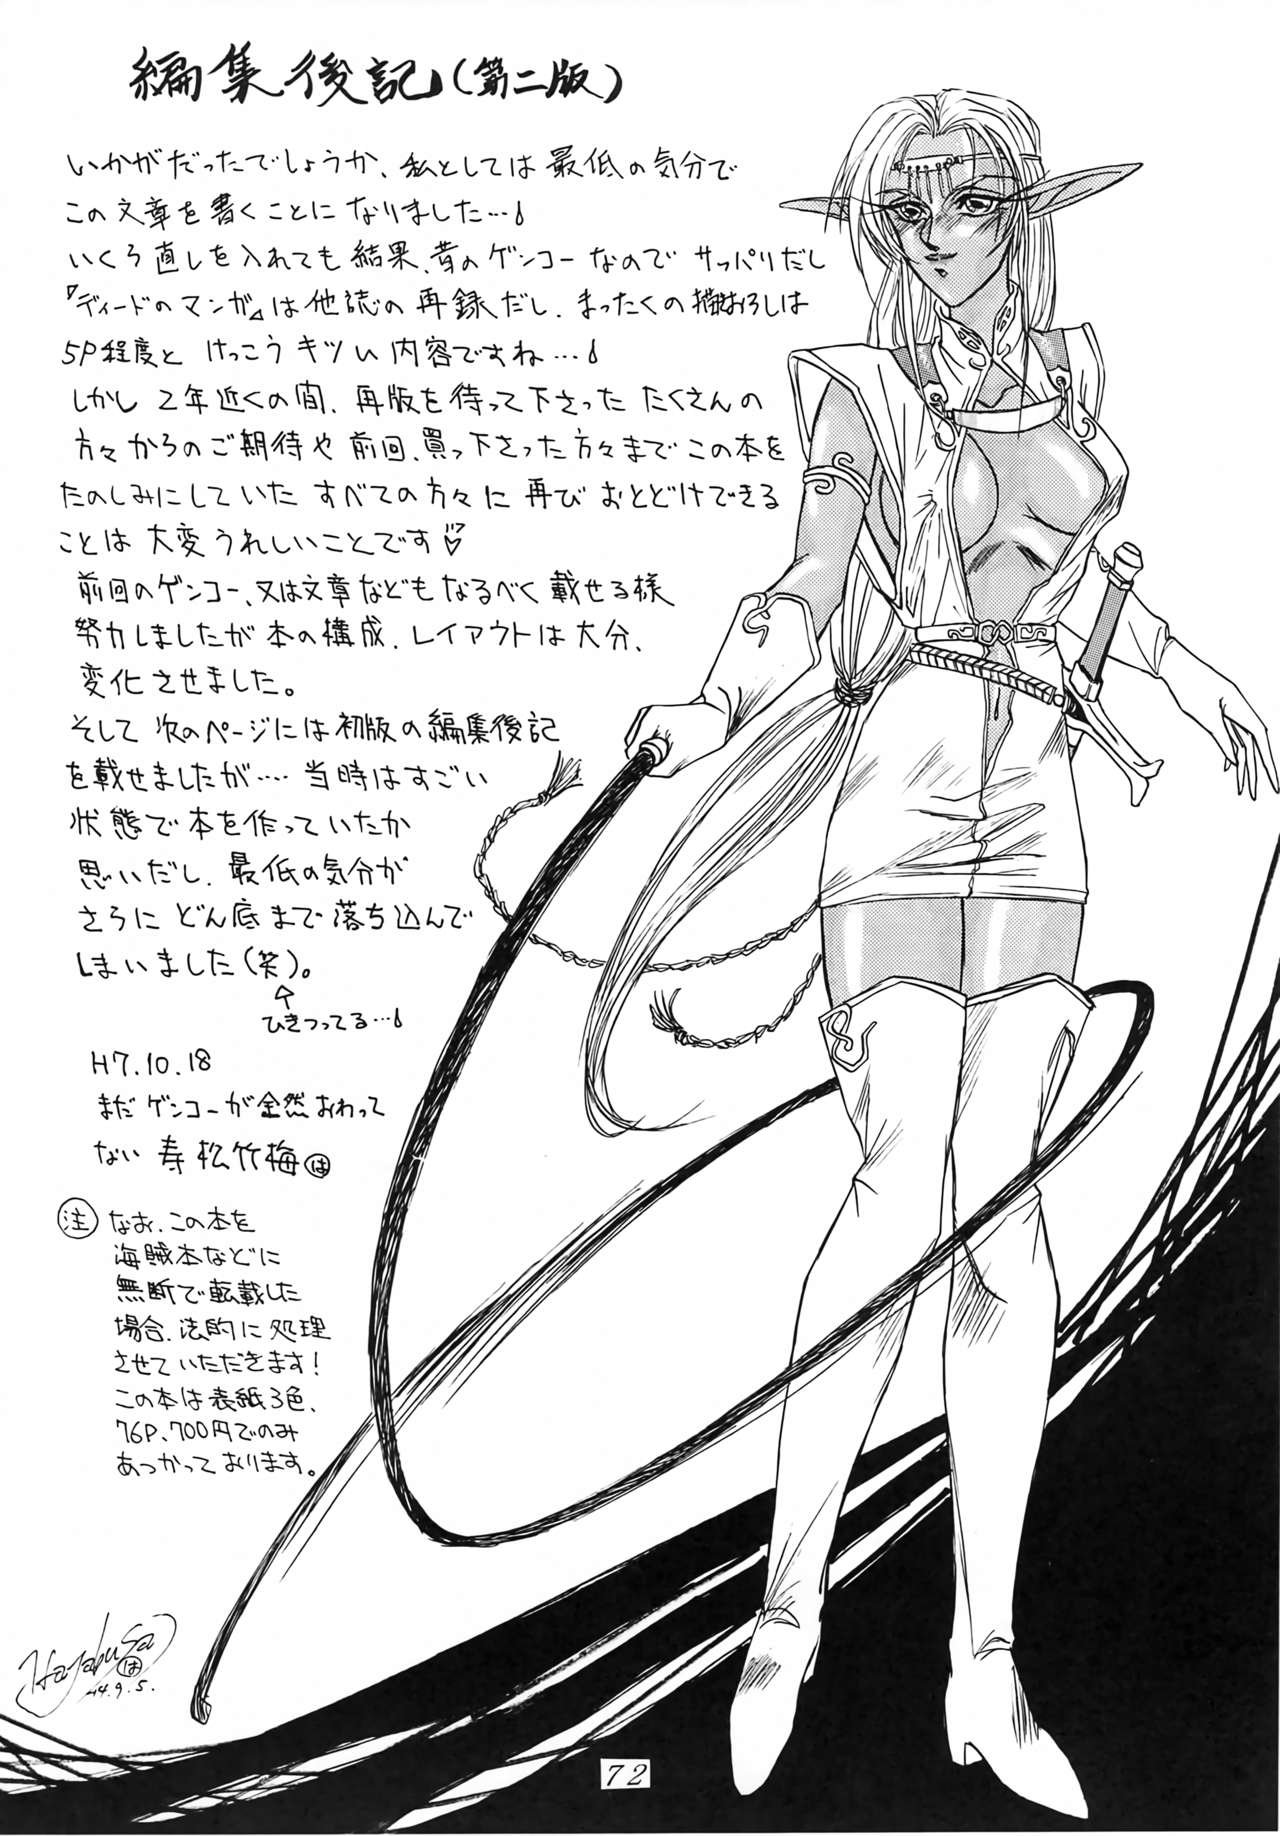 編集後記(第二版)
いかがだったでしょうか、私としては最低の気分で
この文章を書くことになりました…
いくら直しを入れても結果、昔のゲンコーなのでサッパリだし
『ディードのマンガ』は他誌の再録だし、まったくの描おろしは
5P程度とけっこうキツい内容ですね…
しかし2年近くの間、再版を待って下さったたくさんの
方々からのご期待や前回、買って下さった方々までこの本を
たのしみにしていたすべての方々に再びおとどけできる
ことは大変うれしいことです♡
前回のゲンコー、又は文章などもなるべく載せる様
努力しましたが本の構成、レイアウトは大分、
変化させました。
そして次のページには初版の編集後記
を載せましたが…‥当時はすごい
状態で本を作っていたか
思いだし、最低の気分が
さらにどん底まで落ち込んで
しまいました(笑)。
↑
ひきつってる…
H7.10.18
まだゲンコーが全然おわって
ない 寿 松竹梅 は
注 なお、この本を
海賊本などに
無断で転載した
場合、法的に処理
させていただきます!
この本は表紙3色、
76P、700円でのみ
あつかっております。
Hayabusa
は
'94.9.5.
72